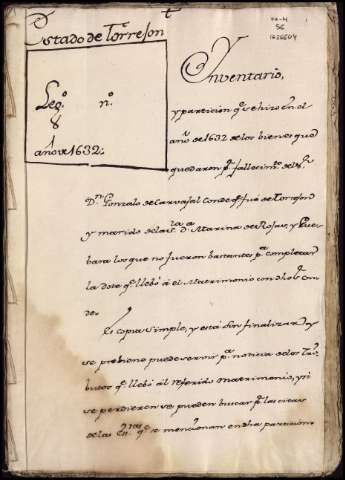 Estado de Torrejon
Leg.º n.º
8
año de 1632.
Inventario,
y particion q.e se hizo en el
año de 1632 de los bienes que
quedaron p.r fallecim.to del S.r
D.n Gonzalo de Carvajal Conde q.e fue de Torrejon
y marido de la S.ra D.a Marina de Rojas, y
los que no fueron bastantes p.a completar
la dote q.e llebó á el Matrimonio con dho Con
de.
Es copia simple, y está sin finalizar, y
se previene puede servir p.a noticia de los
q.e llebó al referido Matrimonio, y si
se perdieren se pueden buscar p.r las citas
de las q.e se mencionan en dha particion